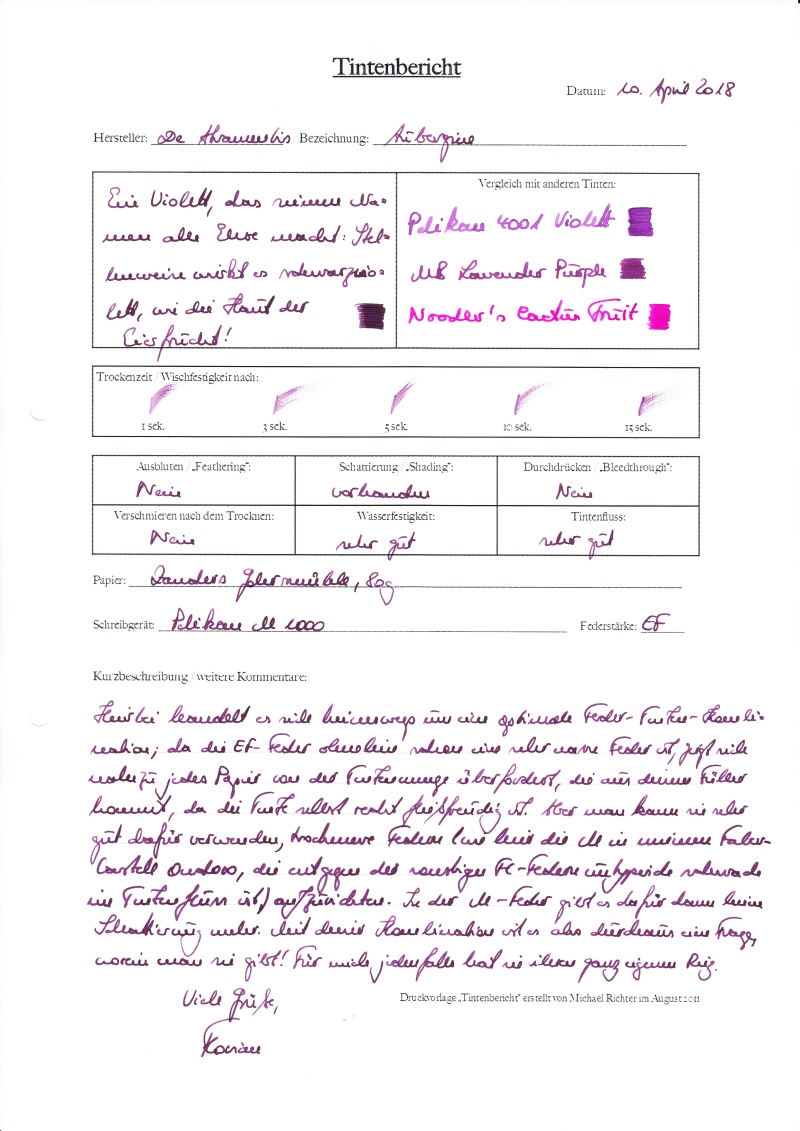 Tintenbericht
Datum: 10. April 2018
Hersteller: De Atramentis Bezeichnung: Aubergine
Ein Violett, das seinem Na-
men alle Ehre macht: Stel-
lenweise wirkt es schwarzvio-
lett, wie die Haut der
Eierfrucht!
Vergleich mit anderen Tinten:
Pelikan 4001 Violett
MB Lavender Purple
Noodler's Cactus Fruit
Trockenzeit / Wischfestigkeit nach:
1 sek. 3 sek. 5 sek. 10 sek. 15 sek.
Ausbluten / „Feathering“: Schattierung / „Shading“: Durchdrücken / „Bleedthrough“:
Nein vorhanden Nein
Verschmieren nach dem Trocknen: Wasserfestigkeit: Tintenfluss:
Nein sehr gut sehr gut
Papier: Zanders Gohrsmühle, 80g
Schreibgerät: Pelikan M 1000 Federstärke: EF
Kurzbeschreibung / weitere Kommentare:
Hierbei handelt es sich keineswegs um eine optimale Feder-Tinten-Kombi-
nation; da die EF-Feder ohnehin schon eine sehr nasse Feder ist, zeigt sich
nahezu jedes Papier von der Tintenmenge überfordert, die aus deinem Füller
kommt, da die Tinte selbst recht fließfreudig ist. Aber man kann sie sehr
gut dafür verwenden, trockenere Federn (wie hier die M in meinem Faber-
Castell Ondoro, die entgegen der sonstigen FC-Federn untypisch schwach
im Tintenfluss ist) aufzurichten. In der M-Feder gibt es dafür dann keine
Schattierung mehr. Mit dieser Kombination ist es also durchaus eine Frage,
worein man sie gibt! Für mich jedenfalls hat sie ihren ganz eigenen Reiz.
Viele Grüße,
Druckvorlage „Tintenbericht“ erstellt von Michael Richter im August 2011